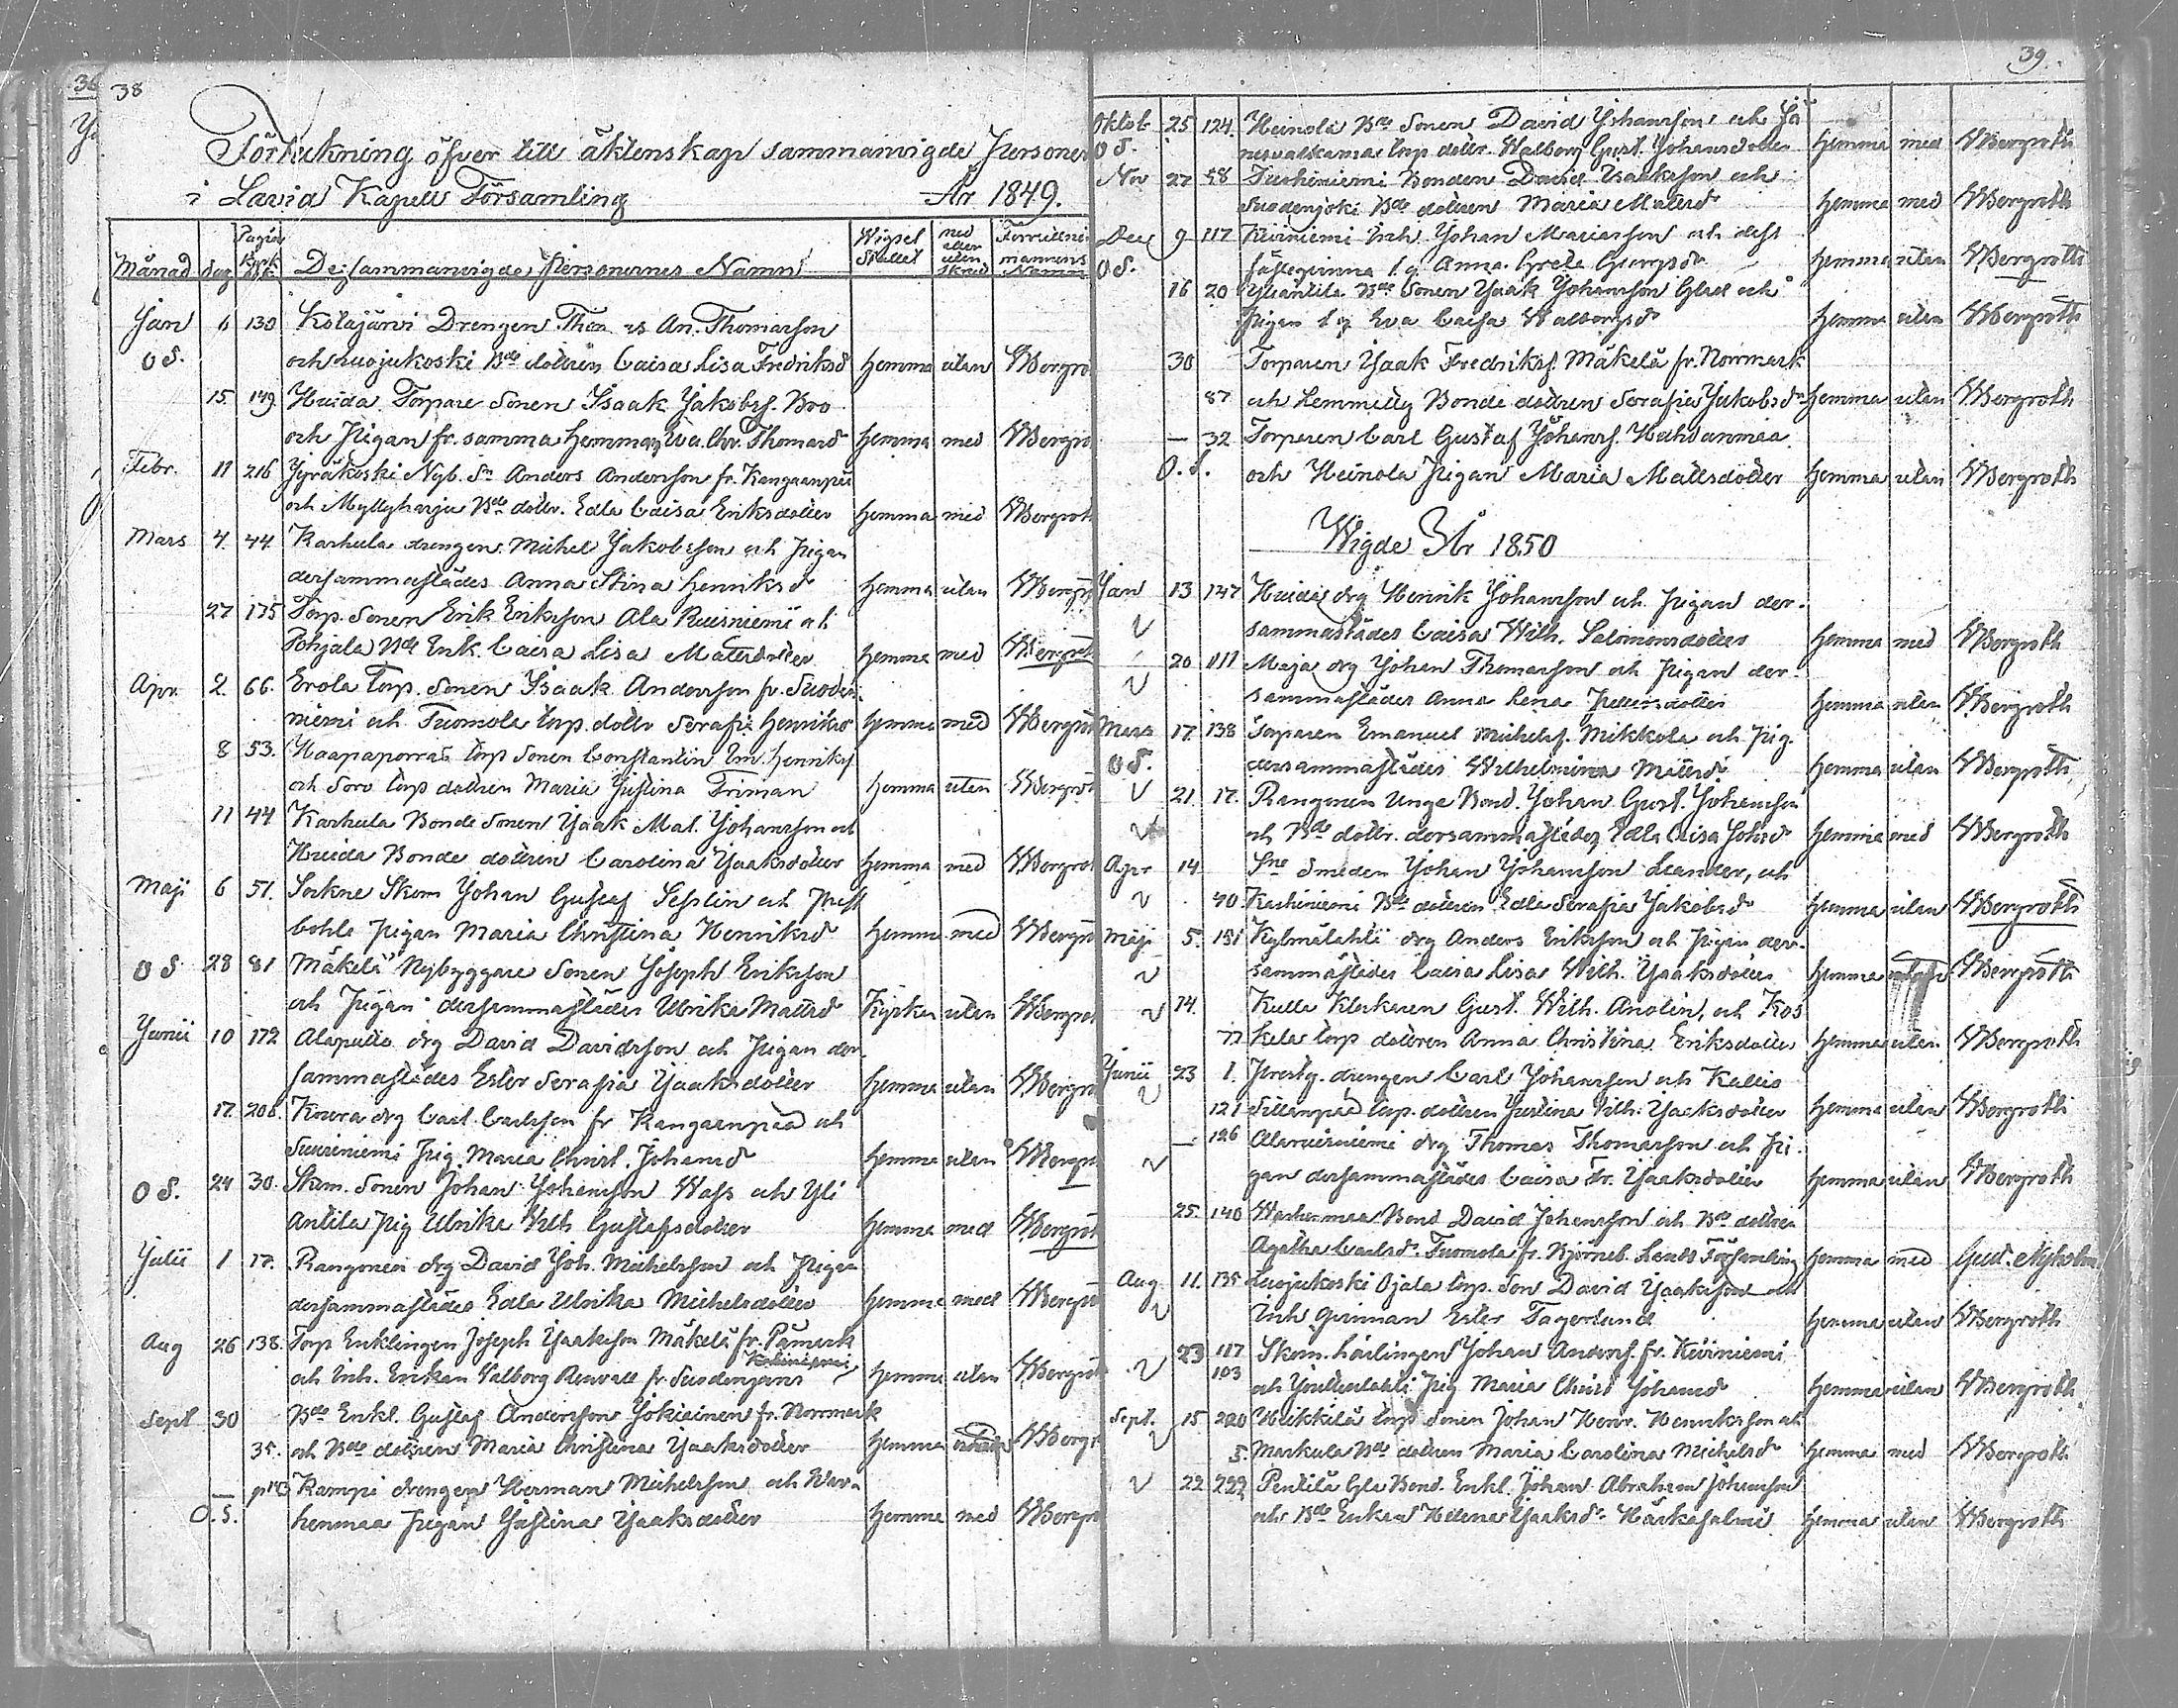 36
38
Förteckning öfver till äktenskap sammanvigde Personer
i Lavia Kapell Församling År 1849.
Månad dag Pagin Kyrk De sammanvigde Personernes Namn Wigsel Stället med eller utan Förrättnings mannens Namn
Jan 6 130 Kolajärvi Drengen Thomasson
O S. och Luojukoski Bde dottren Caisa Lisa Fredriksd hemma utan WBergro
15 149. Huida Torpare Sonen Isaak Jakobss. Boo
och Pigan fr. samma hemman Eva Chr. Thomasd hemma med WBergro
Febr. 11 216 Jyräkoski Nyb. Sn Anders Andersson fr. Kangaanpää
och Myllyharju Bde dottr. Edla Caisa Eriksdotter hemma med WBergroth
Mars 4 44 Karhula drengen Michel Jakobsson och Pigan
dersammastädes Anna Stina Henriksd hemma utan WBergr
27 175 Torp. Sonen Erik Eriksson Ala Ruisniemi och
Pohjala Bde Enk. Caisa Lisa Mattsdotter hemma med WBergroth
Apr. 2. 66. Erola Torp. Sonen Isaak Andersson fr. Suoden
niemi och Tuomola torp. dottr Serafia Henriksd hemma med WBergrot
8 53. Haapaporras torp Sonen Constantin Em. Henrikss
och Soro torp dottren Maria Justina Friman hemma utan WBergrot
11 44 Karhula Bonde Sonen Isaak Mat. Johansson och
Huida Bonde dottren Carolina Isaksdotter hemma med WBergrot
Maji 6 51. Sockne Skom Johan Gustaf Sesslin och Prest
bohls Pigan Maria Christina Henriksd hemma med WBergr
O S 28 81 Mäkelä Nybyggare Sonen Joseph Eriksson
och Pigan dersammastädes Ulrika Mattsd Kyrkan utan WBergrot
Junii 10 172 Alaputto drg David Davidsson och Pigan der
sammastädes Ester Serafia Isaaksdotter hemma utan WBergro
17. 208. Koura drg Carl Carlsson fr Kangaanpää och
Susiniemi Pig. Maria Christ. Johansd hemma utan WBergr
O S. 24 30. Skom. Sonen Johan Johansson Wass och Yli
Antila Pig Ulrika Wilh Gustafsdotter hemma med WBergrot
Julii 1 17. Rangonen drg David Joh. Michelsson och Pigan
dersammastädes Edla Ulrika Michelsdotter hemma med WBergrot
Aug 26 138. Torp Enklingen Joseph Isaaksson Mäkelä fr. Påmark
och Inh. Enkan Valborg Renvall fr. Suodenjärvi hemma utan WBergrot
Sept 30 Bde Enkl. Gustaf Andersson Jokiainen fr. Norrmark
35. och Bde dottren Maria Christina Isaaksdotter hemma WBergr
— Kampi drengen Herman Michelsson och War-
O. S. henmaa Pigan Justina Isaaksdotter hemma med WBergr
39.
Oktob 25 124. Heinola Bde Sonen David Johansson och Jä
O S. torp dottr. Walborg Gust. Johansdotter hemma med WBergroth
Nov 27 58 Bonden David Isaaksson och
Suodenjoki Bde dottren Maria Mattsd hemma med WBergroth
Dec 9 117 Kiviniemi Inh. Johan Mariasson och dess
O S. fästeqvinna l. q. Anna Greta Georgsd. hemma utan WBergroth
16 20 Yliantila Bde Sonen Isaak Johansson Glad och
Pigan l q Eva Caisa Walborgsd hemma utan WBergroth
30 Torparen Isaak Fredrikss. Mäkelä fr. Norrmark
87 och Lemmetty Bonde dottren Serafia Jakobsd. hemma utan WBergroth
— 32 Torparen Carl Gustaf Johanss. Hahdanmaa
O. S. och Heinola Pigan Maria Mattsdotter hemma utan WBergroth
Wigde År 1850
Jan 13 147 Huida drg Henrik Johansson och Pigan der-
sammastädes Caisa Wilh. Salomonsdotter hemma med WBergroth
20 111 Maja drg Johan Thomasson och Pigan der-
sammastädes Anna Lena Pettersdotter hemma utan WBergroth
Mars 17. 138 Torparen Emanuel Michelss. Mikkola och Pig.
O S. dersammastädes Wilhelmina Mattsd hemma utan WBergroth
21. 17. Rangonen Unge Bond. Johan Gust. Johansson
och Bde dottr. dersammastädes Edla Caisa Johsd hemma med WBergroth
Apr 14 Sne Smeden Johan Johansson Leander, och
40 Karhiniemi Bde dottren Edla Serafia Jakobsd hemma utan WBergroth
Maji 5. 151 Kylmälahti drg Anders Eriksson och Pigan der-
sammastädes Caisa Lisa Wilh. Isaaksdotter hemma WBergroth
14. Kulla Klockaren Gust. Wilh. Anolin, och Kos
77 kela torp dottren Anna Christina Eriksdotter hemma utan WBergroth
Junii 23 1. Prestg. drengen Carl Johansson och Kallio
121 Sillanpää torp. dottren Justina Wilh. Isaaksdotter hemma utan WBergroth
— 126 Alaruisniemi drg Thomas Thomasson och Pi-
gan dersammastädes Caisa Fr. Isaaksdotter hemma utan WBergroth
25. 140 Warhenmaa Bond David Johansson och Bde dottren
Agatha Carlsd. Tuomola fr. Björneb. Lands Församling hemma med Gust. Nyholm
Aug 11. 135 Luojukoski Ojala torp. Son David Isaaksson och
Inh Qvinnan Ester Fagerlund hemma utan WBergroth
23 117 Skom. Lärlingen Johan Anderss. fr. Kiviniemi
103 och Pig Maria Christ Johansd hemma utan WBergroth
Sept. 15 220 Heikkilä torp Sonen Johan Henr. Henriksson och
5. Markula Bde dottren Maria Carolina Michelsd hemma med WBergroth
22 222 Penttilä Gla Bond. Enkl. Johan Abraham Johansson
och Bde Enkan Helena Isaaksd. Härkäsalmi hemma utan WBergroth